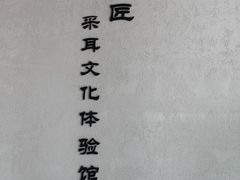 匠
采耳文化体验馆